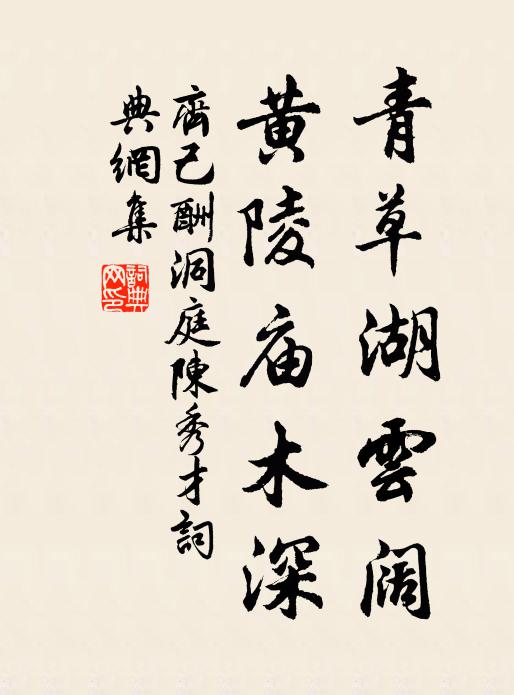 青草湖雲阔
黄陵庙木深
齊己酬洞庭陳秀才詞
典網集
詞典网印